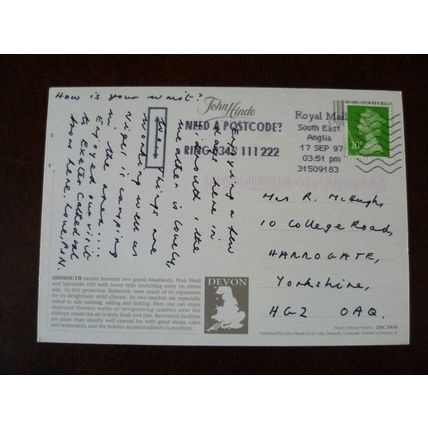 How is your wrist?
John Hinde
NEED A POSTCODE?
RING 0345 111 222
Royal Mail
South East
Anglia
17 SEP 97
03:51 pm
31509183
Enjoying a few
days here in
Sidmouth, the
weather is lovely.
Things are
working well as
Nigel is camping
in the area....
Enjoyed our visit
to Exeter Cathedral
from here. Love,
Mrs R. McHughs
10 College Road,
HARROGATE,
Yorkshire,
HG2 0AQ.
SIDMOUTH nestles between two grand headlands, Peak Head
and Salcombe Hill with lower hills stretching away on either
side. To this protection Sidmouth owes much of its reputation
for its delightfully mild climate. Its two beaches are especially
suited to safe bathing, sailing and fishing. Here one can enjoy
sheltered flowery walks or invigorating rambles over the
clifftops where the air is truly fresh and fine. Recreation facilities
are more than usually well catered for with good shops, cafes
and restaurants, and the holiday accommodation is excellent.
DEVON
2DC 243A